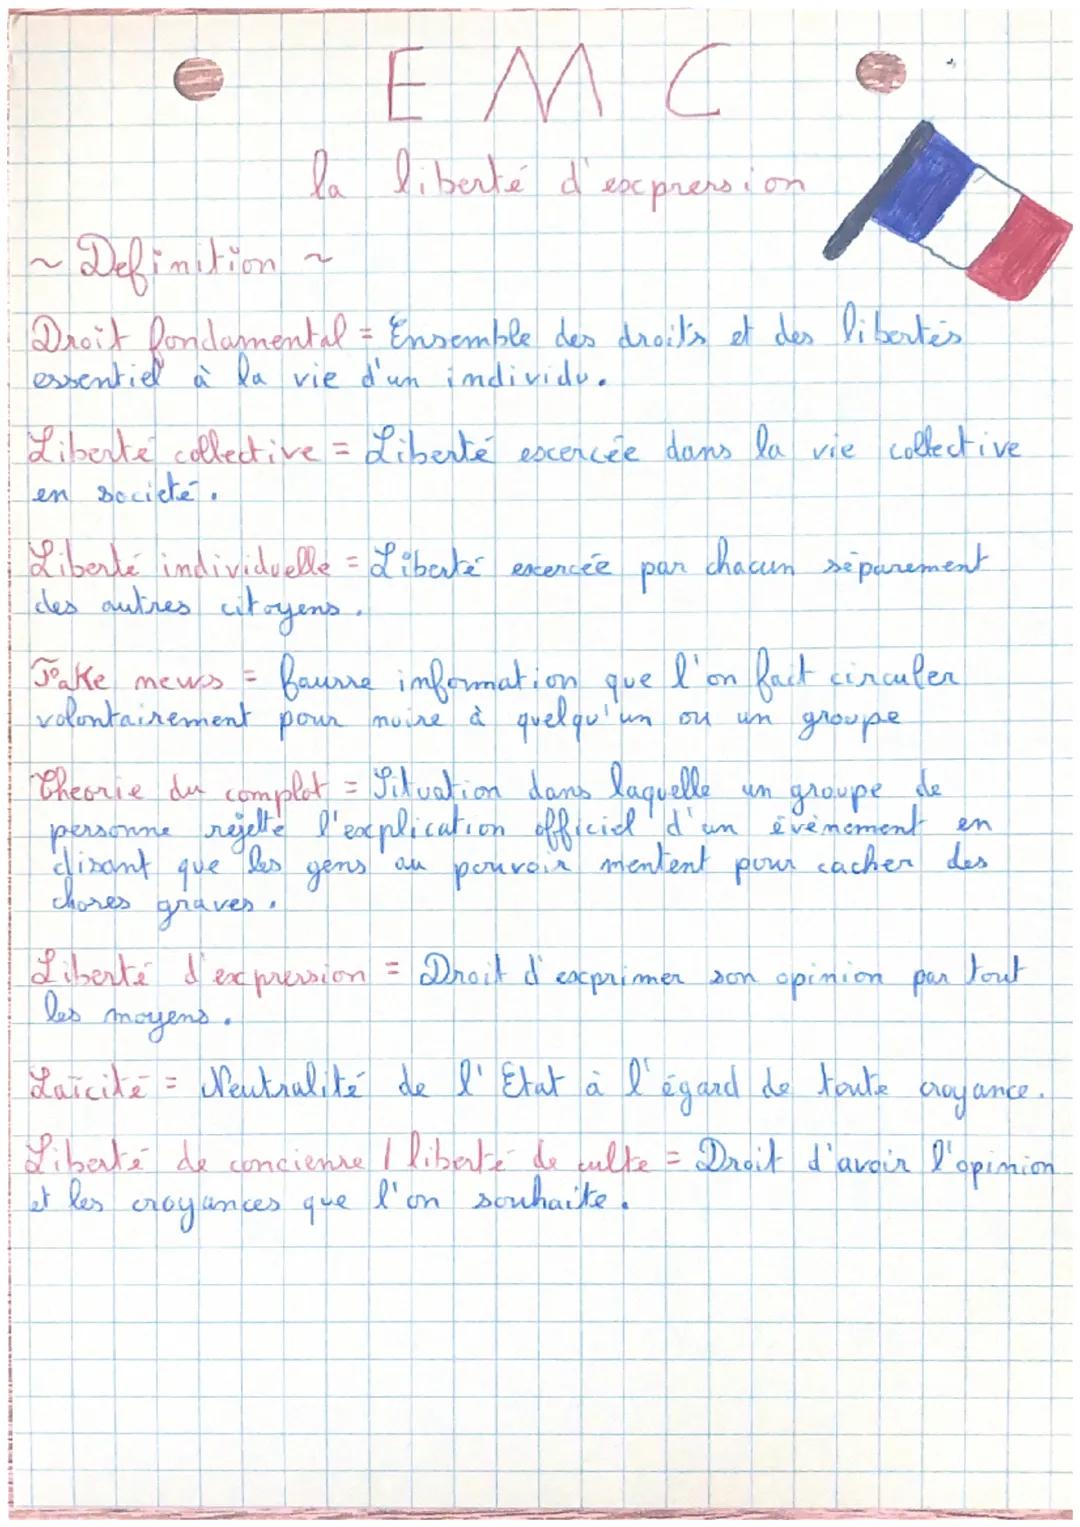 E M C
la liberté d'expression
~ Definition ~
Droit fondamental = Ensemble des droits et des libertés
essentiel à la vie d'un individu.
Liberté collective = Liberté excercée dans la vie collective
en societé.
Liberté individuelle = Liberté excercée par chacun séparement
des autres citoyens.
Fake news = fausse information que l'on fait circuler
volontairement pour nuire à quelqu'un ou un groupe
Théorie du complot = Situation dans laquelle un groupe de
personne rejetté l'explication officiel d'un évènement en
disant que les gens au pouvoir mentent pour cacher des
choses graves.
Liberté d'expression = Droit d'exprimer son opinion par tout
les moyens.
Laïcité = Neutralité de l'Etat à l'égard de toute croyance.
Liberté de concience / liberté de culte = Droit d'avoir l'opinion
et les croyances que l'on souhaite.